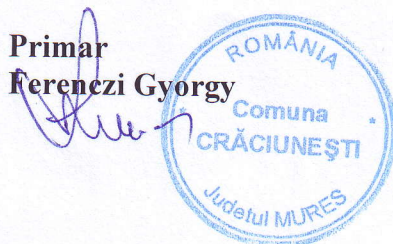 Primar
Ferenczi Gyorgy
ROMÂNIA
Comuna
CRĂCIUNEŞTI
Judetul MUREŞ